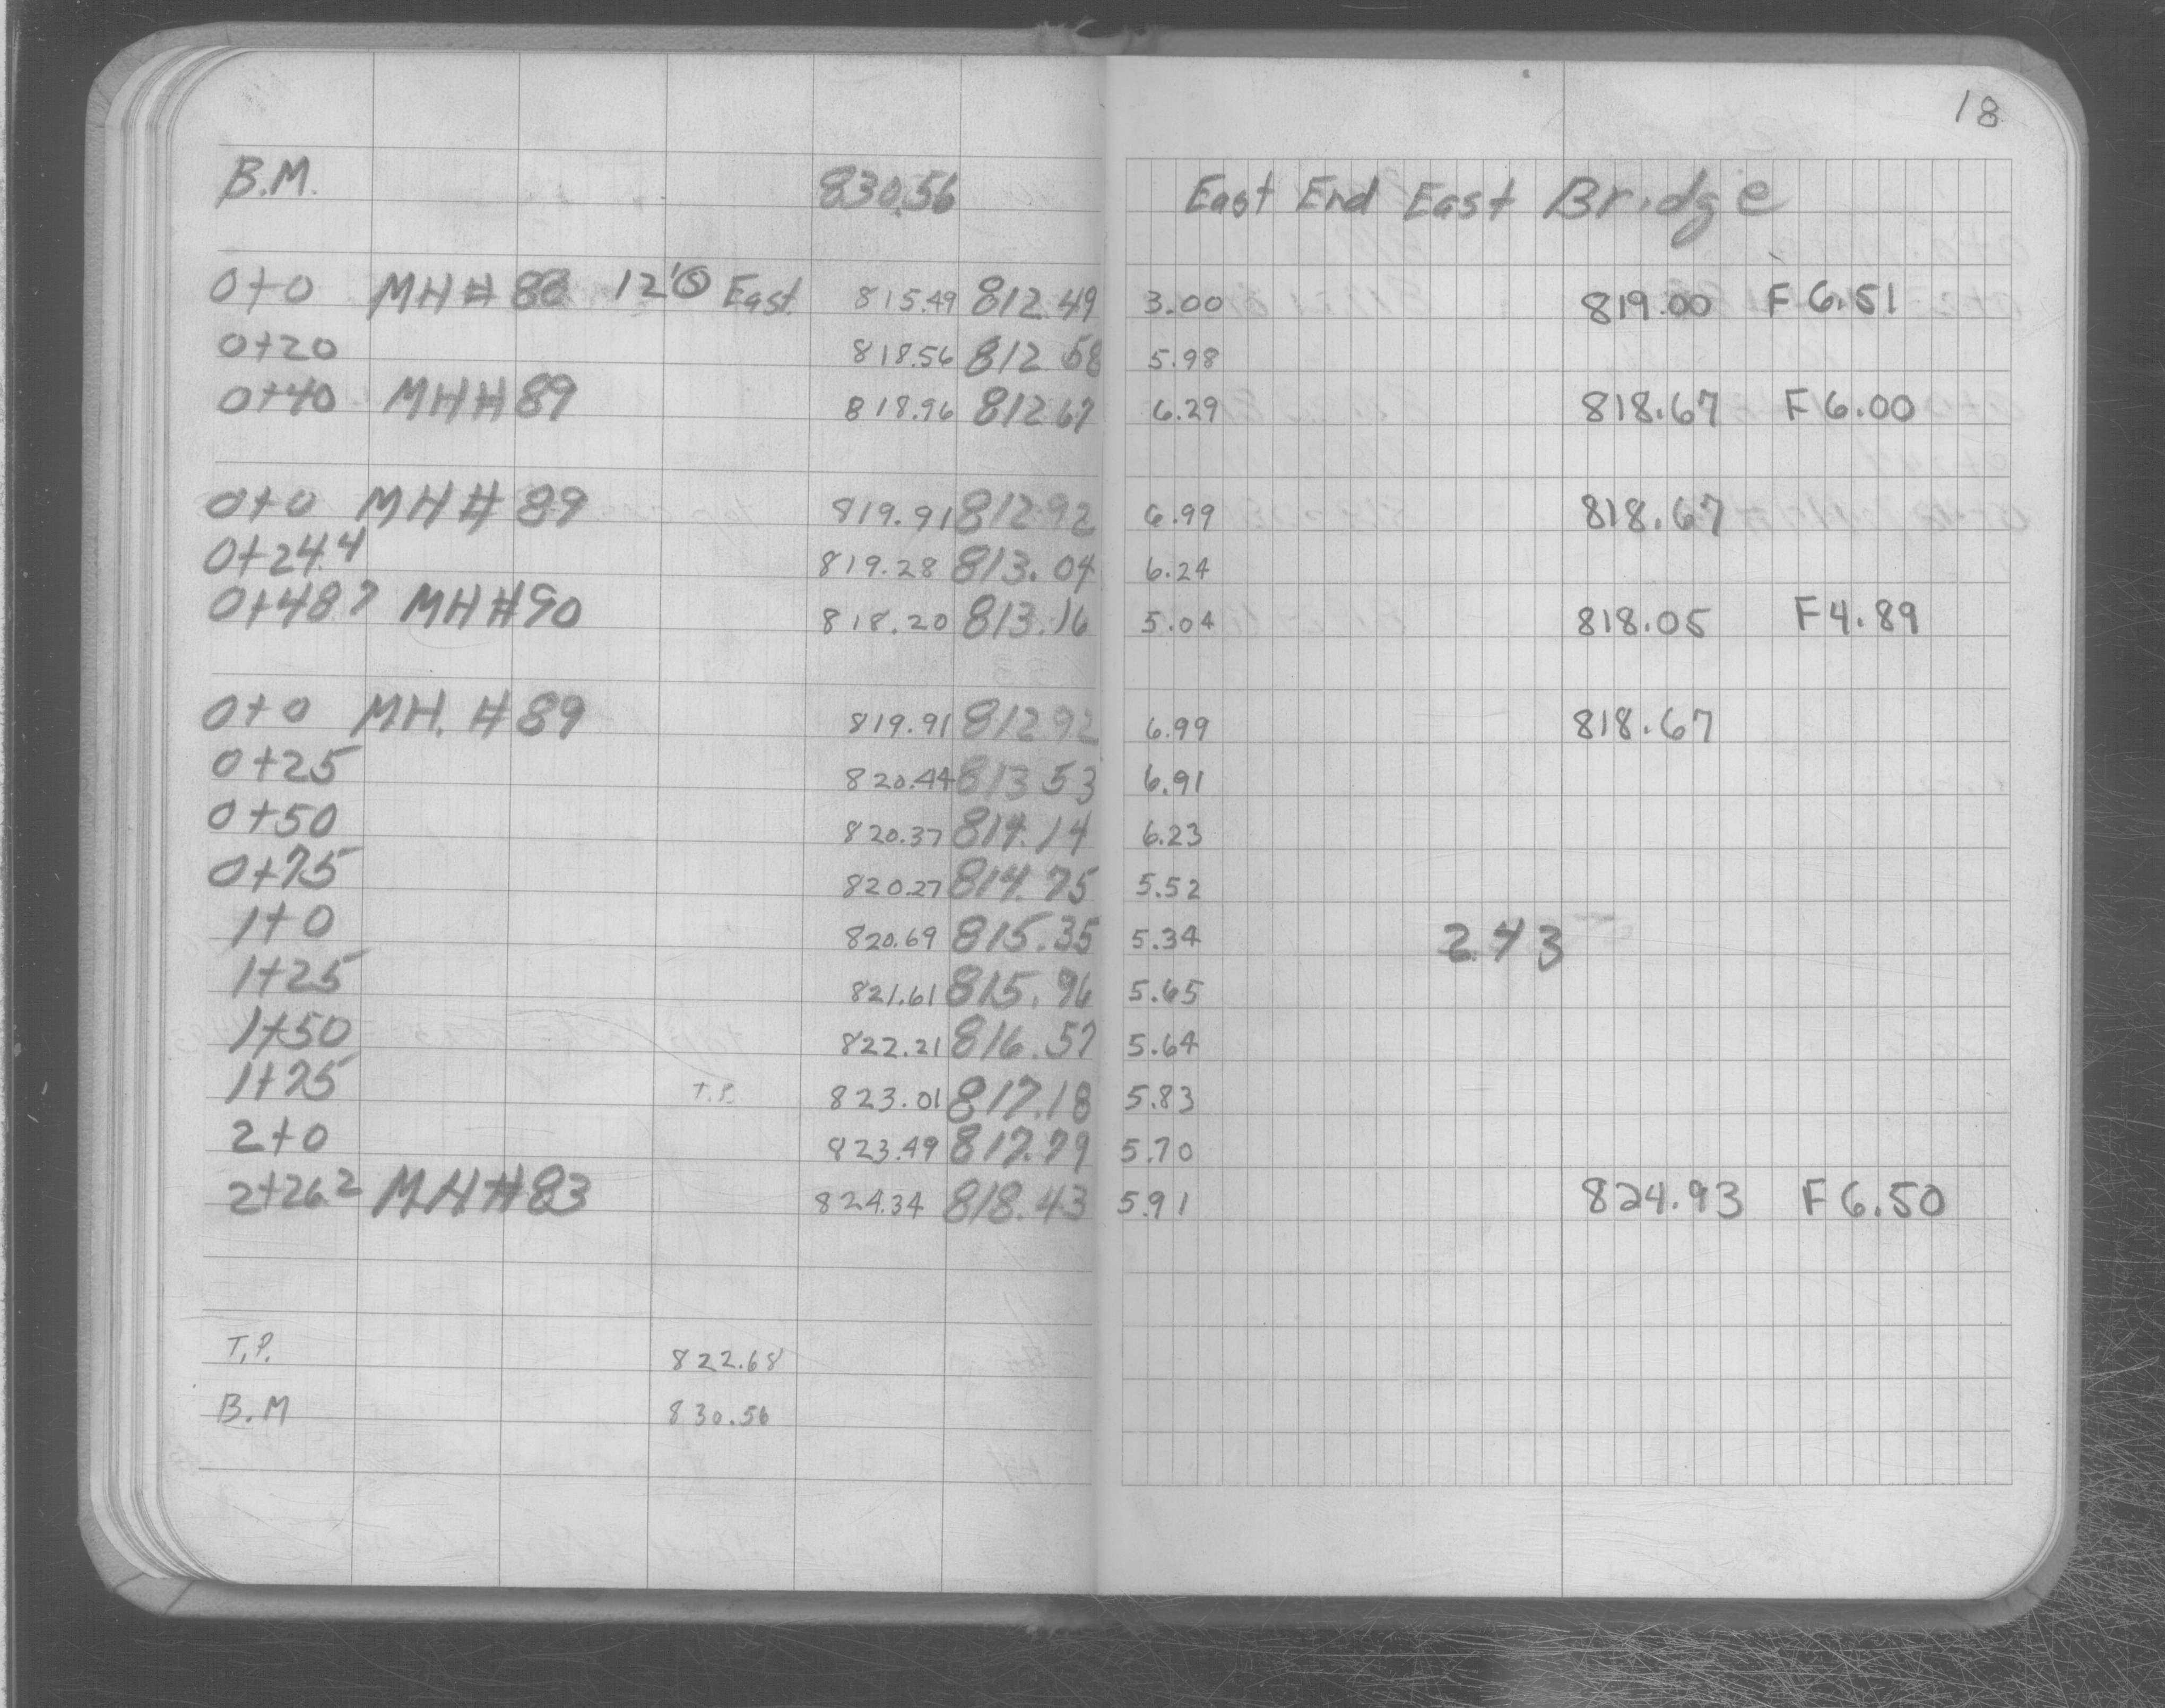 18
B.M. 830.56 East End East Bridge
0+0 MH # 88 12' S East 815.49 812.49 3.00 819.00 F 6.51
0+20 818.56 812.58 5.98
0+40 MH # 89 818.96 812.67 6.29 818.67 F 6.00
0+0 MH # 89 819.91 812.92 6.99 818.67
0+24.4 819.28 813.04 6.24
0+48.7 MH # 90 818.20 813.16 5.04 818.05 F 4.89
0+0 MH. # 89 819.91 812.92 6.99 818.67
0+25 820.44 813.53 6.91
0+50 820.37 814.14 6.23
0+75 820.27 814.75 5.52
1+0 820.69 815.35 5.34 2.43
1+25 821.61 815.96 5.65
1+50 822.21 816.57 5.64
1+75 T.P. 823.01 817.18 5.83
2+0 823.49 817.79 5.70
2+26.2 MH # 83 824.34 818.43 5.91 824.93 F 6.50
T.P. 822.68
B.M 830.56